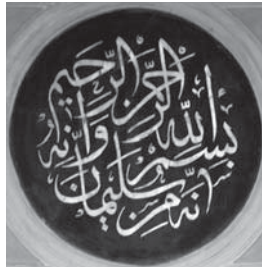 إنه من سليمان وإنه بسم الله الرحمن الرحيم